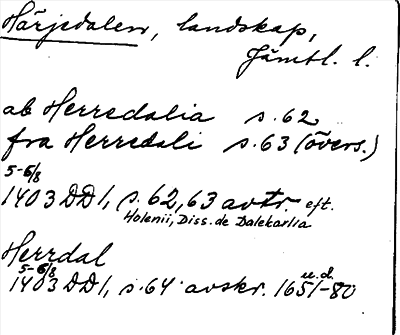 Härjedalen, landskap,
Jämtl. l.
ab Herredalia s. 62
fra Herredali s. 63 (övers.)
5-6/8
1403 DD1, s. 62, 63 avtr. eft.
Holenii, Diss. de Dalekarlia
Herrdal
5-6/8 u.d.
1403 DD1, s. 64 avskr. 1651-80